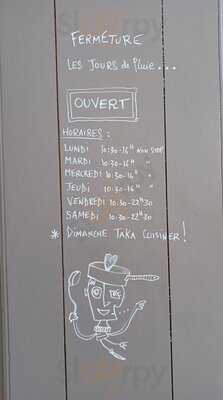 FERMÉTURE
LES JOURS de Pluie...
OUVERT
HORAIRES :
LUNDI 10:30-16H NON STOP
MARDI 10:30-16H "
MERCREDI 10:30-16H "
JEUDI 10:30-16H "
VENDREDI 10:30-22H30
SAMEDI 10:30-22H30
* DIMANCHE TAKA CUISINER!